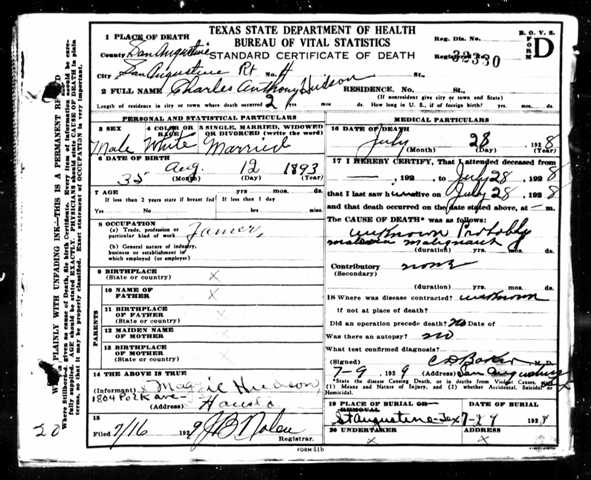 TEXAS STATE DEPARTMENT OF HEALTH
BUREAU OF VITAL STATISTICS
STANDARD CERTIFICATE OF DEATH
Reg. Dis. No.
B. O. V. S.
FORM D
1 PLACE OF DEATH
County San Augustine
City San Augustine Rt No. 4 St.
Registrar's No. 32330
2 FULL NAME Charles Anthony Hudson RESIDENCE: No. St.
(If nonresident give city or town and State)
Length of residence in city or town where death occurred 2 yrs. mos. ds. How long in U. S., if of foreign birth? yrs. mos. ds.
PERSONAL AND STATISTICAL PARTICULARS
3 SEX 4 COLOR OR RACE 5 SINGLE, MARRIED, WIDOWED OR DIVORCED (write the word)
Male White Married
6 DATE OF BIRTH
35 Aug. 12 1893
(Month) (Day) (Year)
7 AGE yrs. mos. ds.
If less than 2 years state if breast fed If less than 1 day
Yes No hrs. min.
8 OCCUPATION
(a) Trade, profession or particular kind of work Farmer
(b) General nature of industry, business or establishment in which employed (or employer)
9 BIRTHPLACE
(State or country) X
PARENTS
10 NAME OF FATHER X
11 BIRTHPLACE OF FATHER
(State or country) X
12 MAIDEN NAME OF MOTHER
13 BIRTHPLACE OF MOTHER
(State or country) X
14 THE ABOVE IS TRUE
(Informant) Maggie Hudson
1804 Polk ave
(Address)
15
Filed 7/16 1929 J B Nolen
Registrar.
MEDICAL PARTICULARS
16 DATE OF DEATH
July 28 1928
(Month) (Day) (Year)
17 I HEREBY CERTIFY, That I attended deceased from
192 , to July 28 1928
that I last saw h alive on July 28 1928
and that death occurred on the date stated above, at — m.
The CAUSE OF DEATH* was as follows:
unknown Probbly
malaria malignant
(duration) yrs. mos. ds.
Contributory none
(Secondary)
(duration) yrs. mos. ds.
18 Where was disease contracted? unknown
If not at place of death?
Did an operation precede death? no Date of
Was there an autopsy? no
What test confirmed diagnosis?
(Signed) M. D.
7-9, 1929 (Address) San Augustine
*State the disease Causing Death, or in deaths from Violent Causes, state (1) Means and Nature of Injury, and (2) whether Accidental, Suicidal or Homicidal.
19 PLACE OF BURIAL OR REMOVAL DATE OF BURIAL
St Augustine Tex 192
20 UNDERTAKER ADDRESS
X X
FORM 51b
20